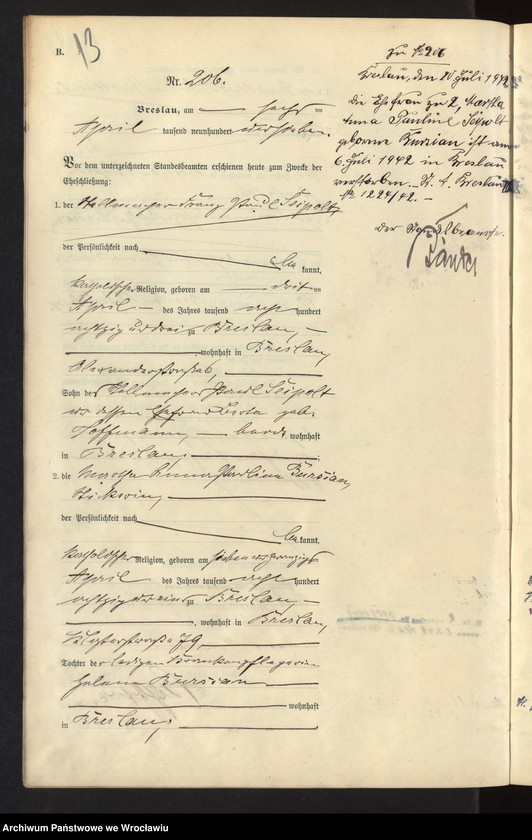 B.
13
Nr. 206.
Breslau, am — sechs ten
April tausend neunhundert
Vor dem unterzeichneten Standesbeamten erschienen heute zum Zwecke der
Eheschließung:
1. der Franz Paul Seipolt,
der Persönlichkeit nach
be kannt,
katholischer Religion, geboren am — dritten
April — des Jahres tausend acht hundert
achtzig und drei zu Breslau, —
, wohnhaft in Breslau,
Alexanderstraße 6,
Sohn des Paul Seipolt
und dessen Ehefrau geb.
Hoffmann, — beide wohnhaft
in Breslau;
2. die Martha Anna Paulina Bursian,
der Persönlichkeit nach
be kannt,
katholischer Religion, geboren am sieben und zwanzigsten
April des Jahres tausend acht hundert
achtzig und eins zu Breslau —
, wohnhaft in Breslau,
Klosterstraße 79,
Tochter der ledigen Krankenpflegerin
Helena Bursian
wohnhaft
in Breslau;
Zu Nr. 206
Breslau, den 20. Juli 1942
Die Ehefrau zu 2, Martha
Anna Pauline Seipolt
geborene Bursian ist am
6. Juli 1942 in Breslau
verstorben. – St. A. Breslau
Nr. 1224/42. –
Der Standesbeamte.
Archiwum Państwowe we Wrocławiu